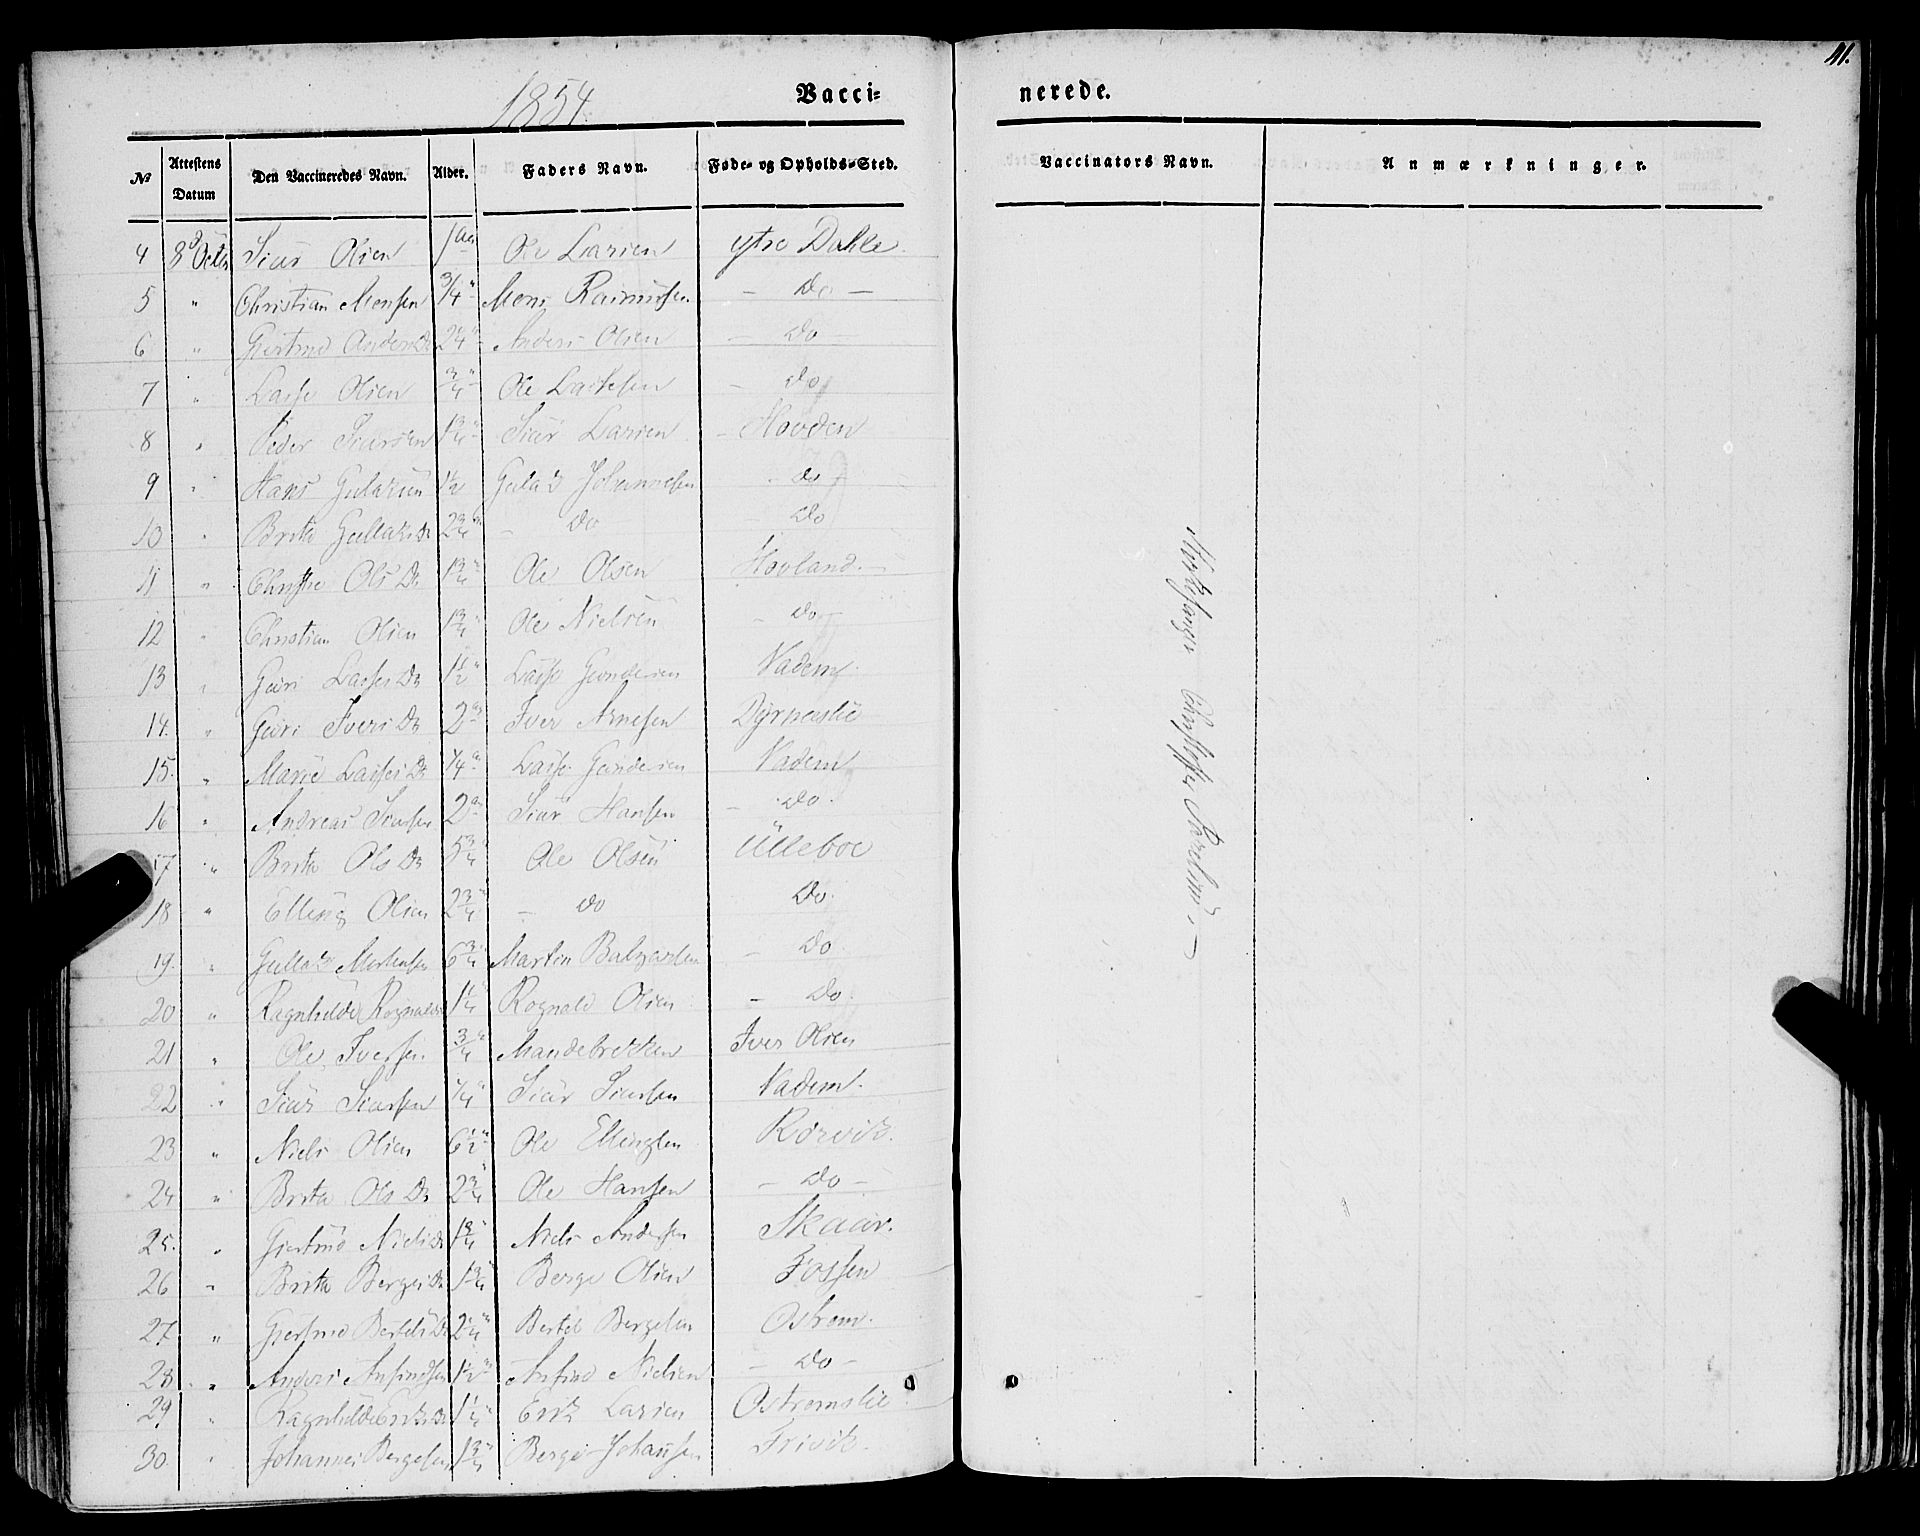 41.
1854
Vacci-
nerede.
No Attestens Datum Den Vaccineredes Navn. Alder. Faders Navn. Føde- og Opholds-Sted.
Vaccinators Navn. Anmærkninger.
4 8d Octbr Siur Olsen 1 aar Ole Larsen ytre Dahle
5 " Christian Monsen 3/4 " Mons Rasmussen - Do -
6 " Giertrud Anders Dr 2 1/4 " Anders Olsen - Do -
7 " Lasse Olsen 3/4 " Ole Lassesen - Do
8 " Peder Siursen 1 3/4 " Siur Larsen - Hovden
9 " Hans Gulaksen 1 1/2 Gulak Johannesen - Do -
10 " Brita Gullaks Dr 2 3/4 - Do - Do
11 " Christie Ols Dr 1 3/4 " Ole Olsen Hovland. -
12 " Christian Olsen 1 3/4 " Ole Nielsen - Do -
13 " Guri Lasses Dr 1 1/2 " Lasse Gundersen Nadem.
14. " Guri Ivers Dr 2 aar Iver Arnesen Dyrneslie
15. " Marie Lasses Dr 1/4 a Lasse Gundersen Nadem
16 " Andreas Siursen 2 aar Siur Hansen - Do.
17 " Brita Ols Dr 5 3/4 Ole Olsen Ulleboe
18 " Elling Olsen 2 3/4 " - Do Do.
19. " Gullak Mortensen 6 3/4 " Martin Balzersen - Do.
20 " Ragnhilde Rognalds 1 1/4 " Rognald Olsen - Do.
21 " Ole Iversen 3/4 " Mandebrekken Iver Olsen
22 " Siur Siursen 1/4 " Siur Siursen Nadem.
23 " Niels Olsen 6 1/2 " Ole Ellingsen Rorvik.
24 " Brita Ols Dr 2 3/4 " Ole Hansen - Do -
25. " Giertrud Niels Dr 1 3/4 " Niels Andersen Skaar.
26 " Brita Berges Dr 1 3/4 " Berge Olsen Fossen
27. " Giertrud Bertels Dr 2 1/4 " Bertel Bergesen Ostrem.
28. " Anders Anfindsen 1 1/2 " Anfind Nielsen - Do -
29 " Ragnhilde Eriks Dr 1 1/4 " Erik Larsen Ostremslie
30. " Johannes Bergesen 1 3/4 " Berge Johansen Frivik.
Christoffer